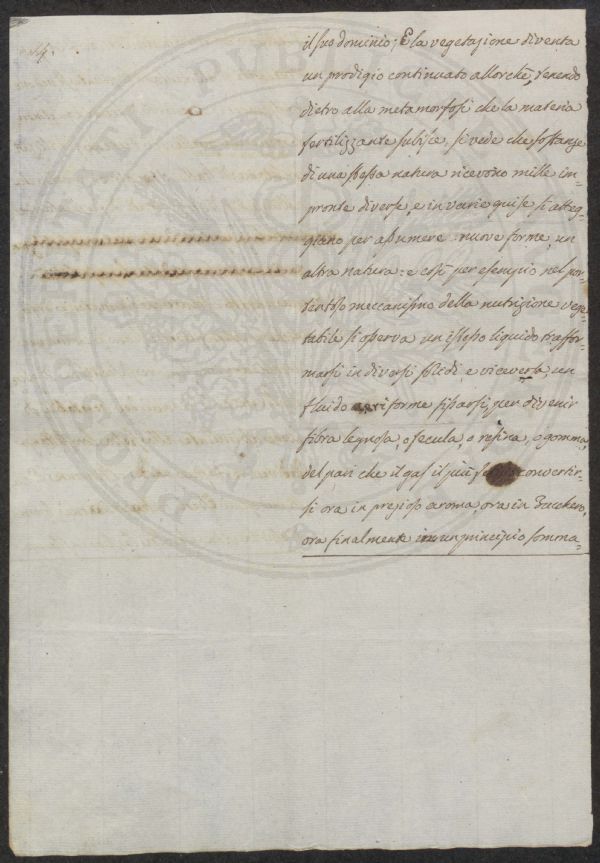 il suo dominio; E la vegetazione diventa
un prodigio continuato allorchè, tenendo
dietro alla metamorfosi che la materia
fertilizzante subisce, si vede che sostanze
di una stessa natura ricevono mille im-
pronte diverse, e in varie guise si atteg-
giano per assumere nuove forme, un
altra natura: e così per esempio nel por-
tentoso meccanismo della nutrizione vege-
tabile si osserva un istesso liquido trasfor-
marsi in diversi solidi, e viceversa; un
fluido aeriforme fissarsi, per divenir
fibra legnosa, o fecula, o resina, o gomma,
del pari che il gas il più convertir-
si ora in prezioso aroma, ora in Zucchero,
ora finalmente in un principio somma-